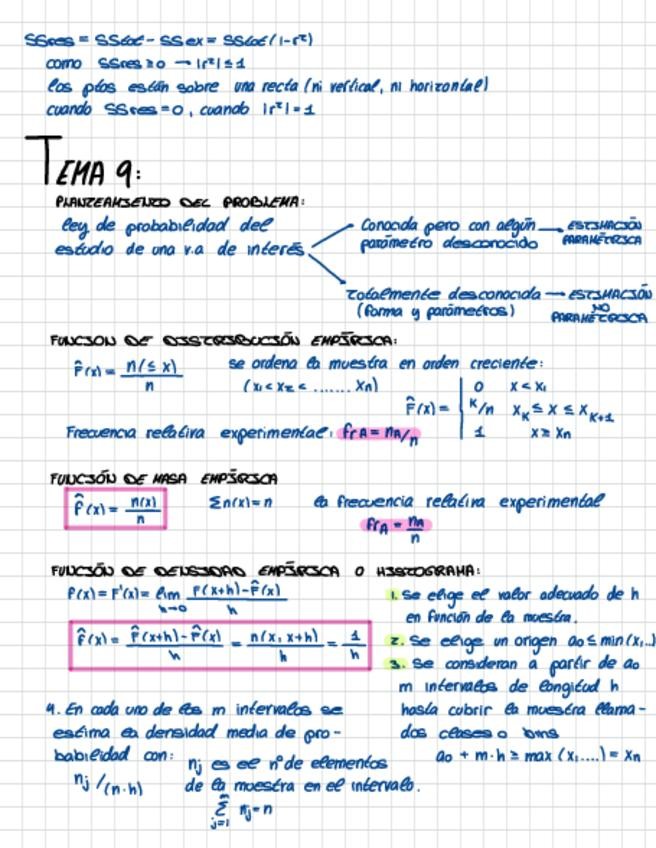 SSres = SStot - SSex = SStot (1-r²)
como SSres ≥ 0 → |r²| ≤ 1
los ptos están sobre una recta (ni vertical, ni horizontal)
cuando SSres = 0, cuando |r²| = 1
TEMA 9:
PLANTEAMIENTO DEL PROBLEMA:
ley de probabilidad del
estudio de una v.a de interés
Conocida pero con algún
parámetro desconocido
ESTIMACIÓN
PARAMÉTRICA
Totalmente desconocida
(forma y parámetros)
ESTIMACIÓN
NO
PARAMÉTRICA
FUNCION DE DISTRIBUCIÓN EMPÍRICA:
F̂(x) = n(≤ x) / n
se ordena la muestra en orden creciente:
(x₁ < x₂ < ....... Xn)
F̂(x) = | 0 x < x₁
K/n X_K ≤ x ≤ X_K+1
1 x ≥ Xn
Frecuencia relativa experimental: frA = nA/n
FUNCIÓN DE MASA EMPÍRICA
P̂(x) = n(x) / n
Σn(x) = n
la frecuencia relativa experimental
frA = nA / n
FUNCIÓN DE DENSIDAD EMPÍRICA O HISTOGRAMA:
f(x) = F'(x) = lim h→0 F(x+h) - F̂(x) / h
f̂(x) = F̂(x+h) - F̂(x) / h = n(x, x+h) / h = 1 / h
1. Se elige el valor adecuado de h
en función de la muestra.
2. Se elige un origen a₀ ≤ min(x₁..)
3. Se consideran a partir de a₀
m intervalos de longitud h
hasta cubrir la muestra llama-
das clases o bins
a₀ + m·h ≥ max (x₁....) = Xn
4. En cada uno de los m intervalos se
estima la densidad media de pro-
babilidad con:
nj /(n·h)
nj es el nº de elementos
de la muestra en el intervalo.
Σ j=1 m nj = n